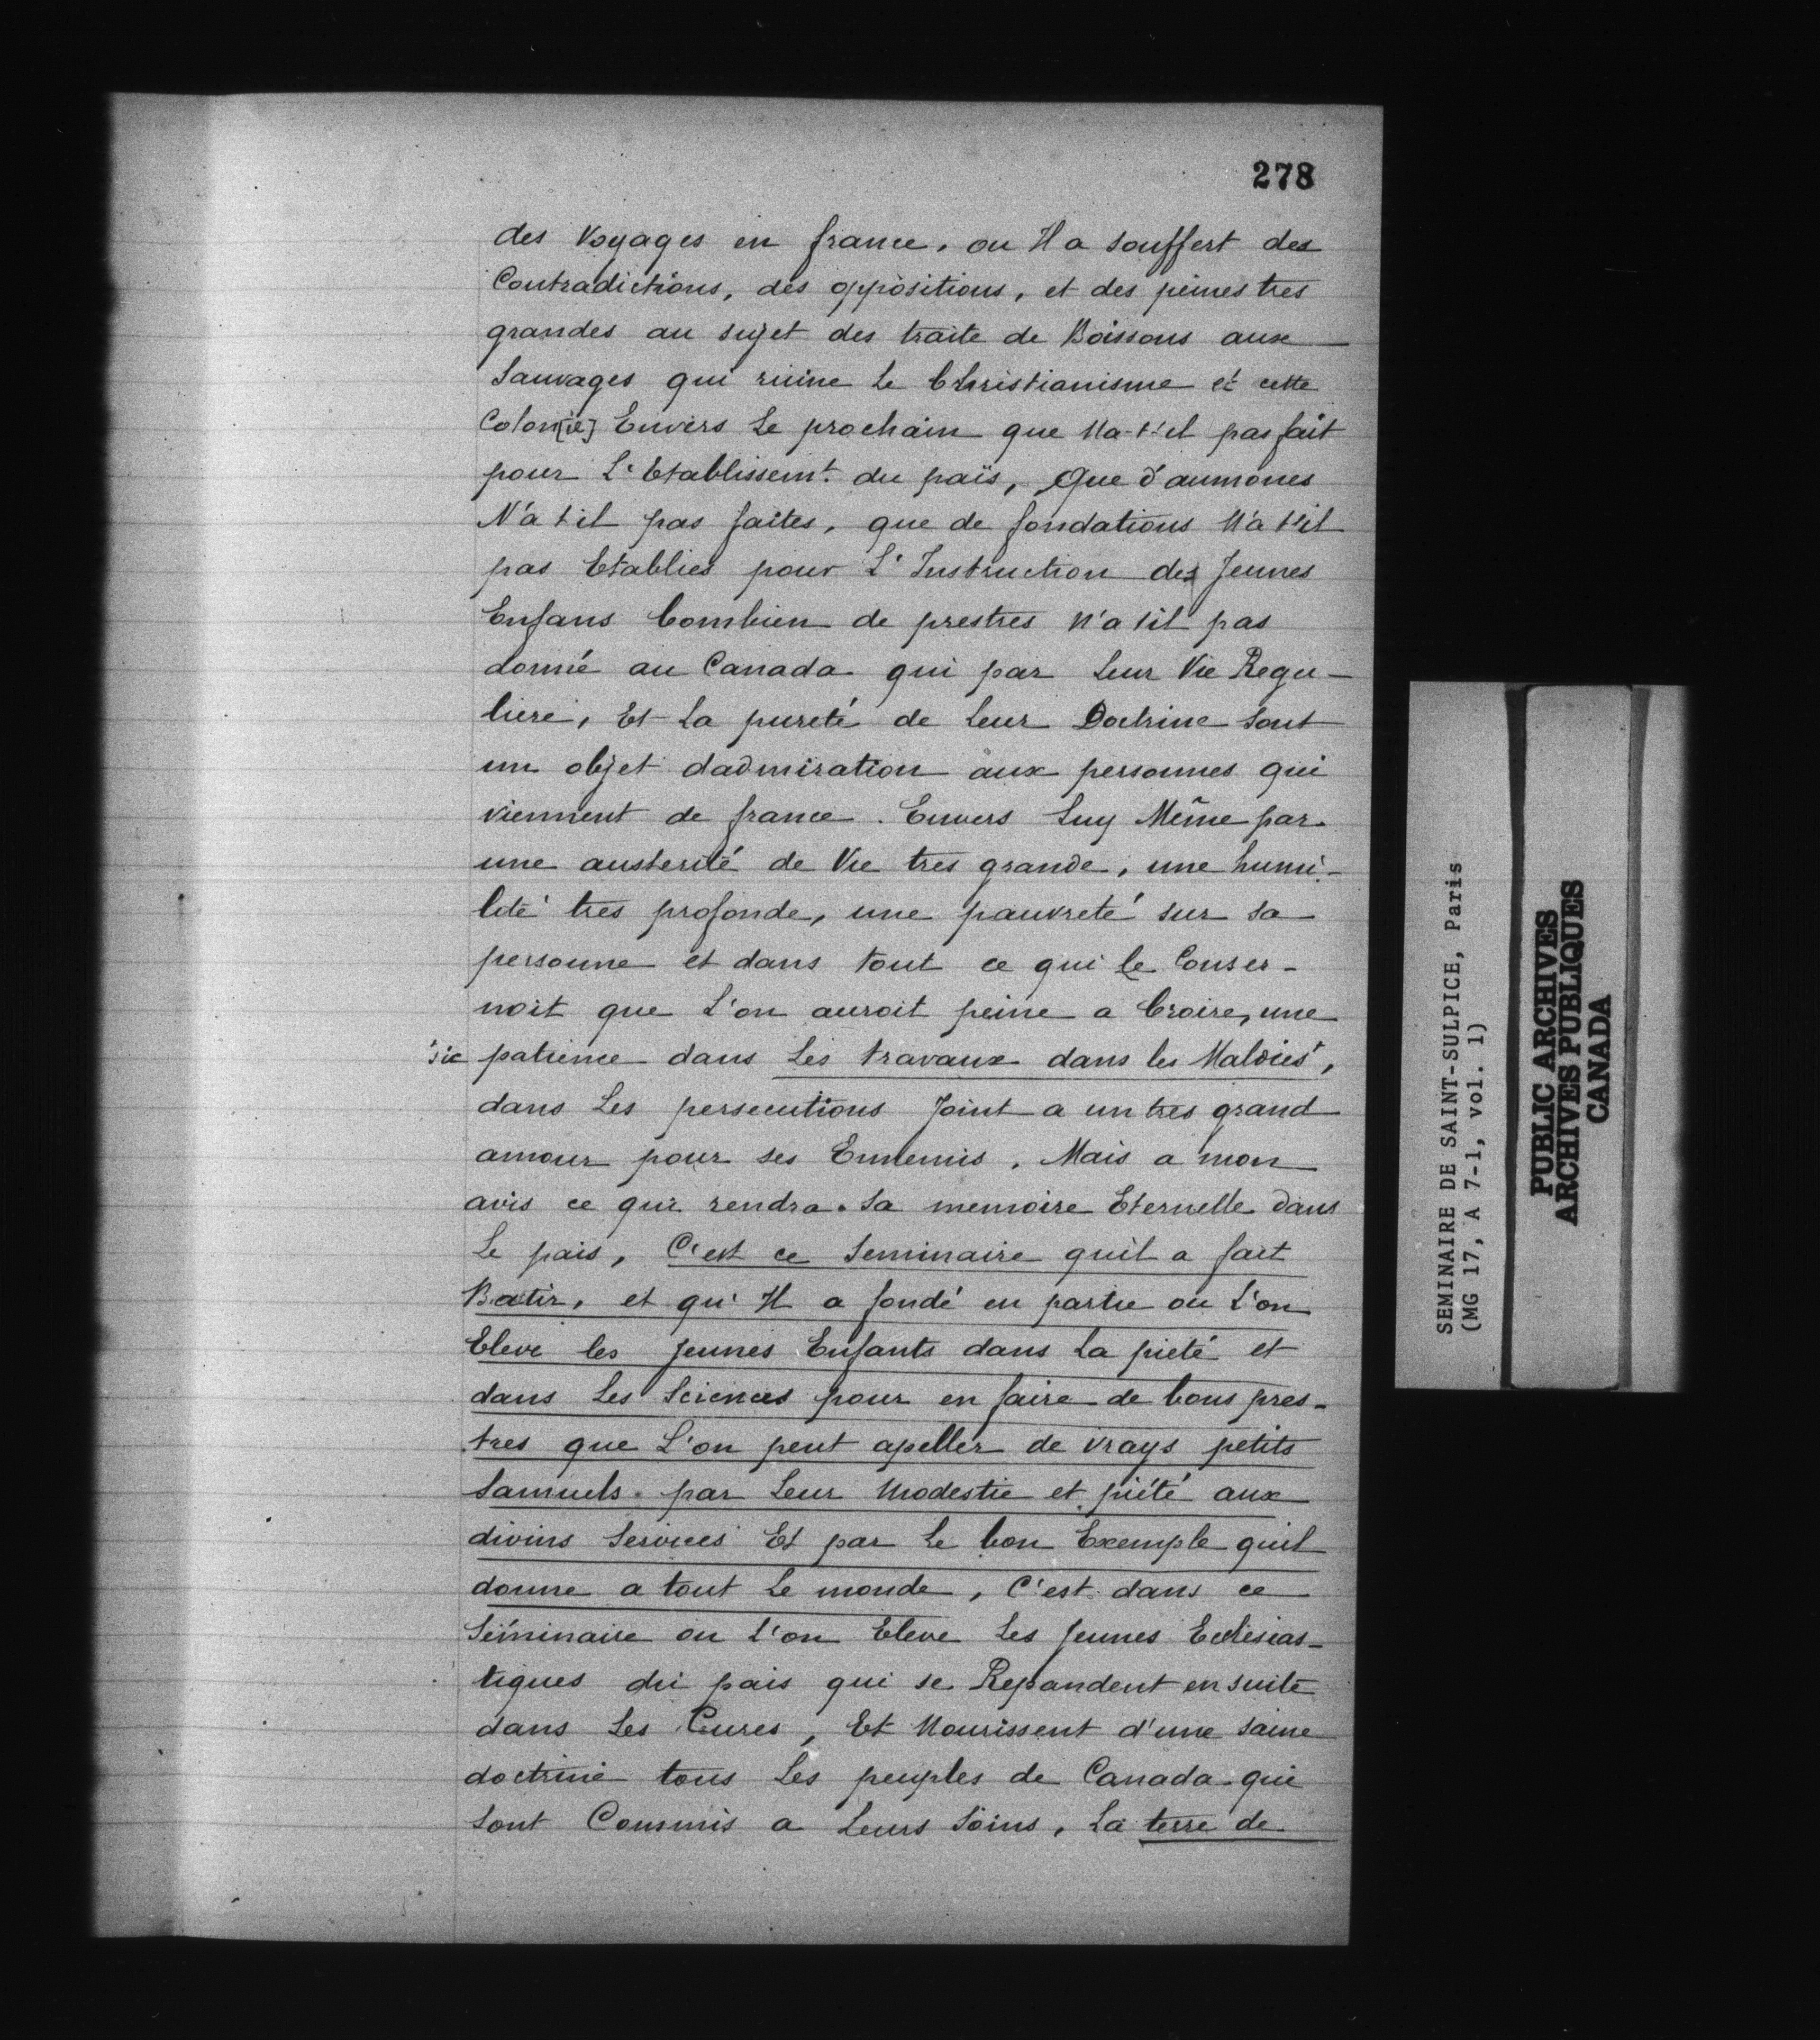 278
des Voyages en france, ou Il a souffert des
Contradictions, des oppositions, et des peines tres
grandes au sujet des traite de Boissons aux
Sauvages qui ruine Le Christianisme et cette
Colon[ie] Envers Le prochain que Na-t'il pas fait
pour L'Etablissemt. du païs, Que d'aumones
N'a t'il pas faites, que de fondations N'a t'il
pas Etablies pour L'Instruction des Jeunes
Enfans Combien de prestres n'a til pas
donné au Canada qui par Leur Vie Regu-
liere, Et La pureté de Leur Doctrine sont
un objet dadmiration aux personnes qui
viennent de france. Envers Luy Même par
une austerité de Vie tres grande, une humi-
lité tres profonde, une pauvreté sur sa
personne et dans tout ce qui Le Conser-
noit que L'on auroit peine a Croire, une
sic patience dans Les travaux dans les Maldies,
dans Les persecutions Joint a un tres grand
amour pour ses Ennemis. Mais a mon
avis ce qui rendra sa memoire Eternelle dans
Le pais, C'est ce Seminaire quil a fait
Batir, et qu'Il a fondé en partie ou L'on
Eleve les Jeunes Enfants dans La pieté et
dans Les Sciences pour en faire de bons pres-
tres que L'on peut apeller de vrays petits
Samuels par Leur Modestie et piété aux
divins Services Et par Le bon Exemple quil
donne a tout Le monde, C'est dans ce
Séminaire ou L'on Eleve Les Jeunes Eclésias-
tiques du pais qui se Repandent en suite
dans Les Cures, Et Nourissent d'une saine
doctrine tous Les peuples de Canada qui
sont Commis a Leurs Soins, La terre de
SEMINAIRE DE SAINT-SULPICE, Paris
(MG 17, A 7-1, vol. 1)
PUBLIC ARCHIVES
ARCHIVES PUBLIQUES
CANADA